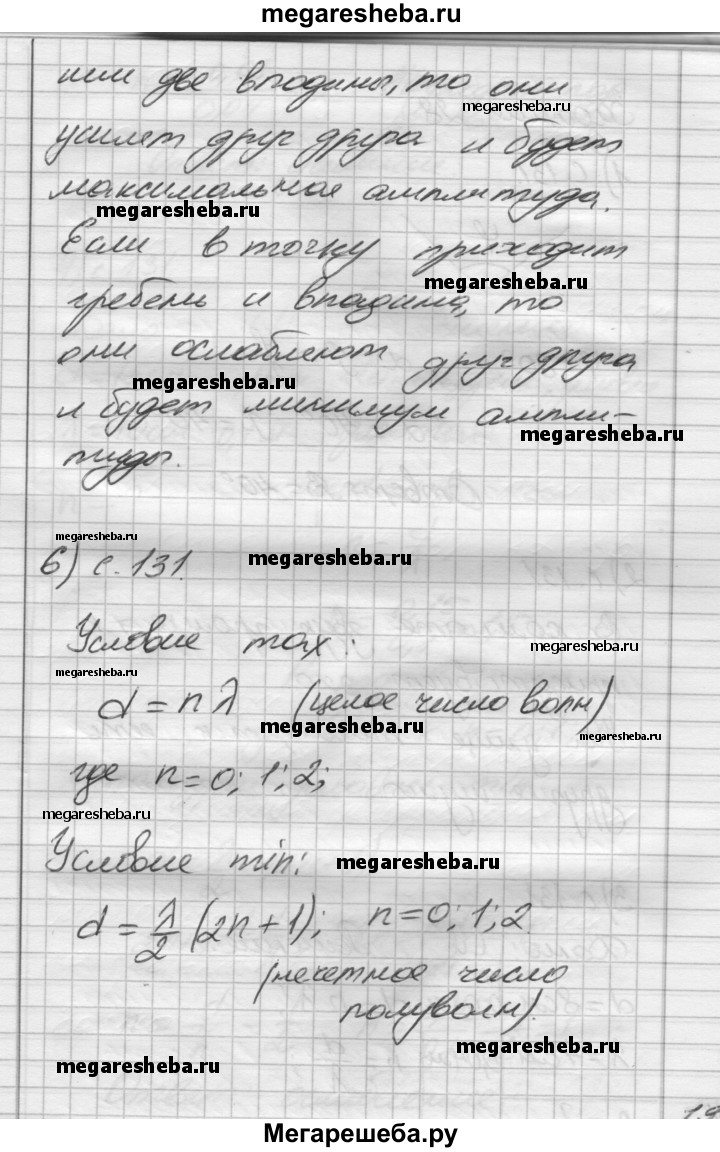 megaresheba.ru
или две впадины, то они
megaresheba.ru
усилят друг друга и будет
максимальная амплитуда.
megaresheba.ru
Если в точку приходит
megaresheba.ru
гребень и впадина, то
они ослабляют друг друга
megaresheba.ru
и будет минимум ампли-
megaresheba.ru
туды.
megaresheba.ru
6) с. 131.
megaresheba.ru
Условие max:
megaresheba.ru
megaresheba.ru
d = nλ (целое число волн)
megaresheba.ru
megaresheba.ru
где n = 0; 1; 2;
megaresheba.ru
Условие min:
megaresheba.ru
d = λ/2 (2n + 1); n = 0; 1; 2
(нечетное число
полуволн).
megaresheba.ru
megaresheba.ru
Мегарешеба.ру